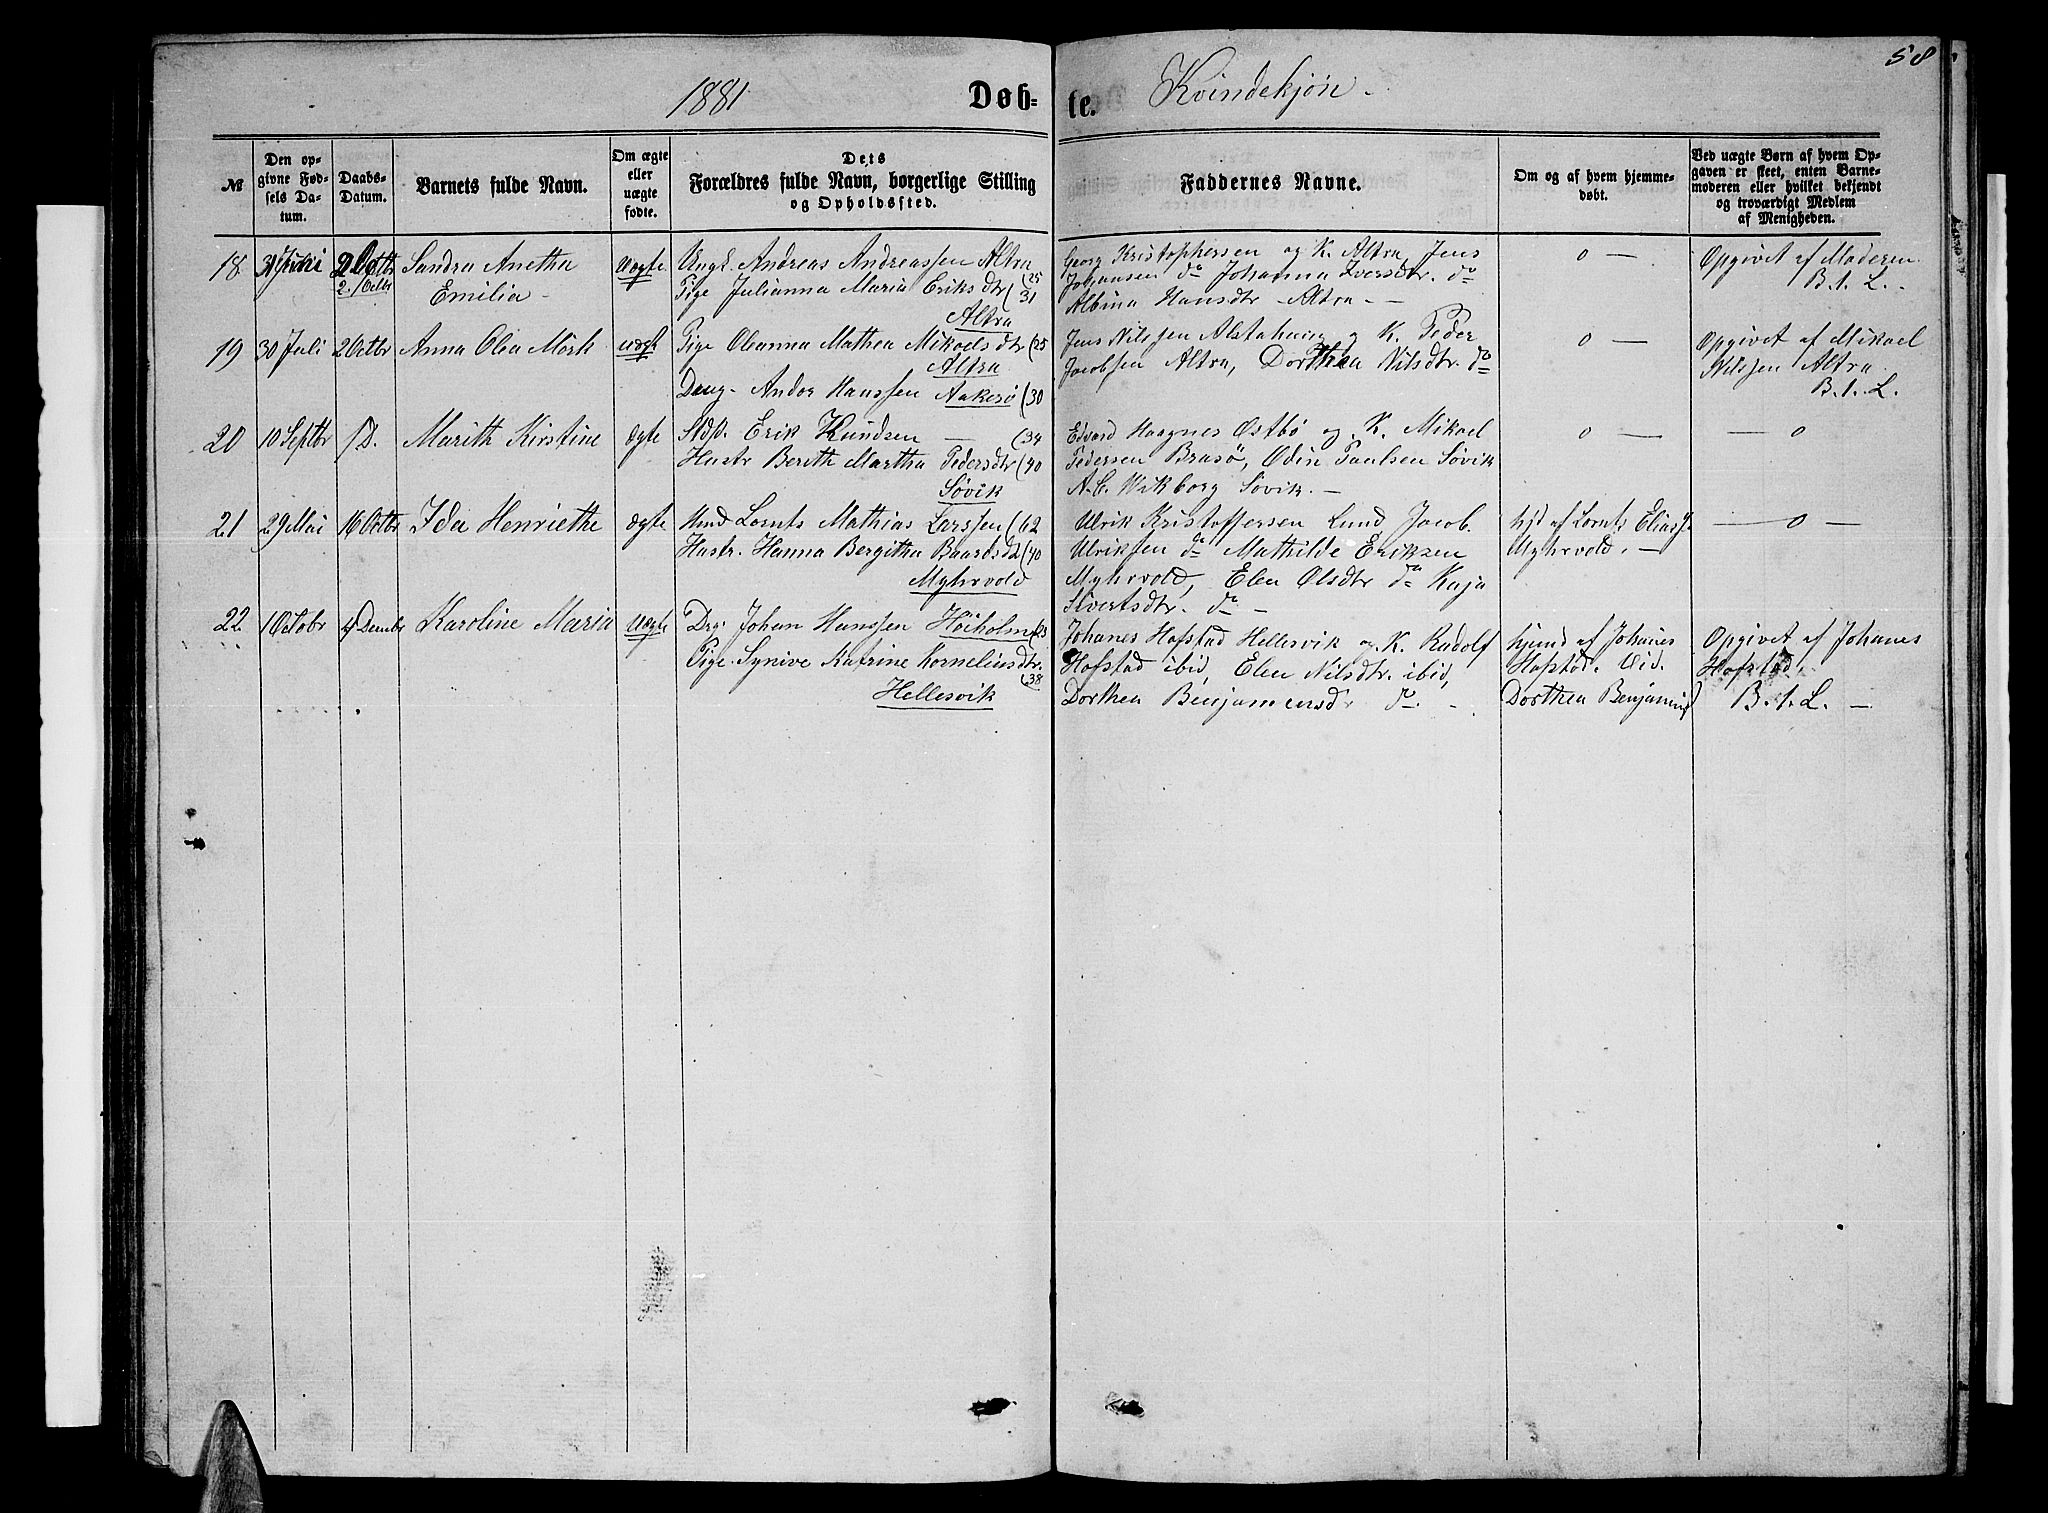 58
1881 Døb-
te. Kvindekjøn
№
Den op-
givne Fød-
sels Da-
tum.
Daabs-
Datum.
Barnets fulde Navn.
Om ægte
eller
uægte
fødte.
Dets
Forældres fulde Navn, borgerlige Stilling
og Opholdssted.
Faddernes Navne.
Om og af hvem hjemme-
døbt.
Ved uægte Børn af hvem Op-
gaven er skeet, enten Barne-
moderen eller hvilket bekjendt
og troværdigt Medlem
af Menigheden.
18 Sandra Anetha Uægte Ungk. Andreas Andreassen Altra (25
2. Octbr Emilia Pige Julianna Maria Eriksdtr (31
Altra
Georg Kristophersen og K. Altra, Jens
Johansen do Johanna Iversdtr. do
Albina Hansdtr Altra
o —
Opgivet af Moderen
B. 1. L.
19 30 Juli 2 Octbr Anna Olea Mørk uægt Pige Oleanna Mathea Mikaelsdtr (25
Altra
Andor Hanssen Aakesø (30
Jens Nilssen Alstahaug og K. Peder
Jacobsen Altra, Dorthea Nilsdtr. do
o —
Opgivet af Mikael
Nilssen Altra
B. 1. L.
20 10 Septbr /D. Marith Kirstine ægte Erik Knudsen — (34
Hustr Berith Martha Pedersdtr (40
Søvik
Edvard Haagnes Østbø og K. Mikael
Pedersen Brasø, Odin Paulsen Søvik
A. C. Wikborg Søvik. —
o —
— o
21 29 Mai 16 Octbr Ida Henriethe ægte Lornts Mathias Larssen (62
Hustr. Hanna Bergitha (40
Myhrvold
Ulrik Kristoffersen Lund Jacob
Ulriksen do Mathilde Eriksen
Myhrvold, Elen Olsdtr do Kaja
Sivertsdtr. do —
hjd af Lornts
Myhrvold. —
— o —
22 1 Octobr 4 Decmbr Karoline Maria Uægte Johan Hanssen Høiholm
Pige Synive Katrine Korneliusdtr.
(38
Hellesvik
Johanes Hofstad Hellesvik og K. Rudolf
Hofstad ibid, Elen Nilsdtr. ibid,
Dorthea do
hjemd af Johanes
Dorthea
Opgivet af Johanes
Hofstad
B. 1. L. —